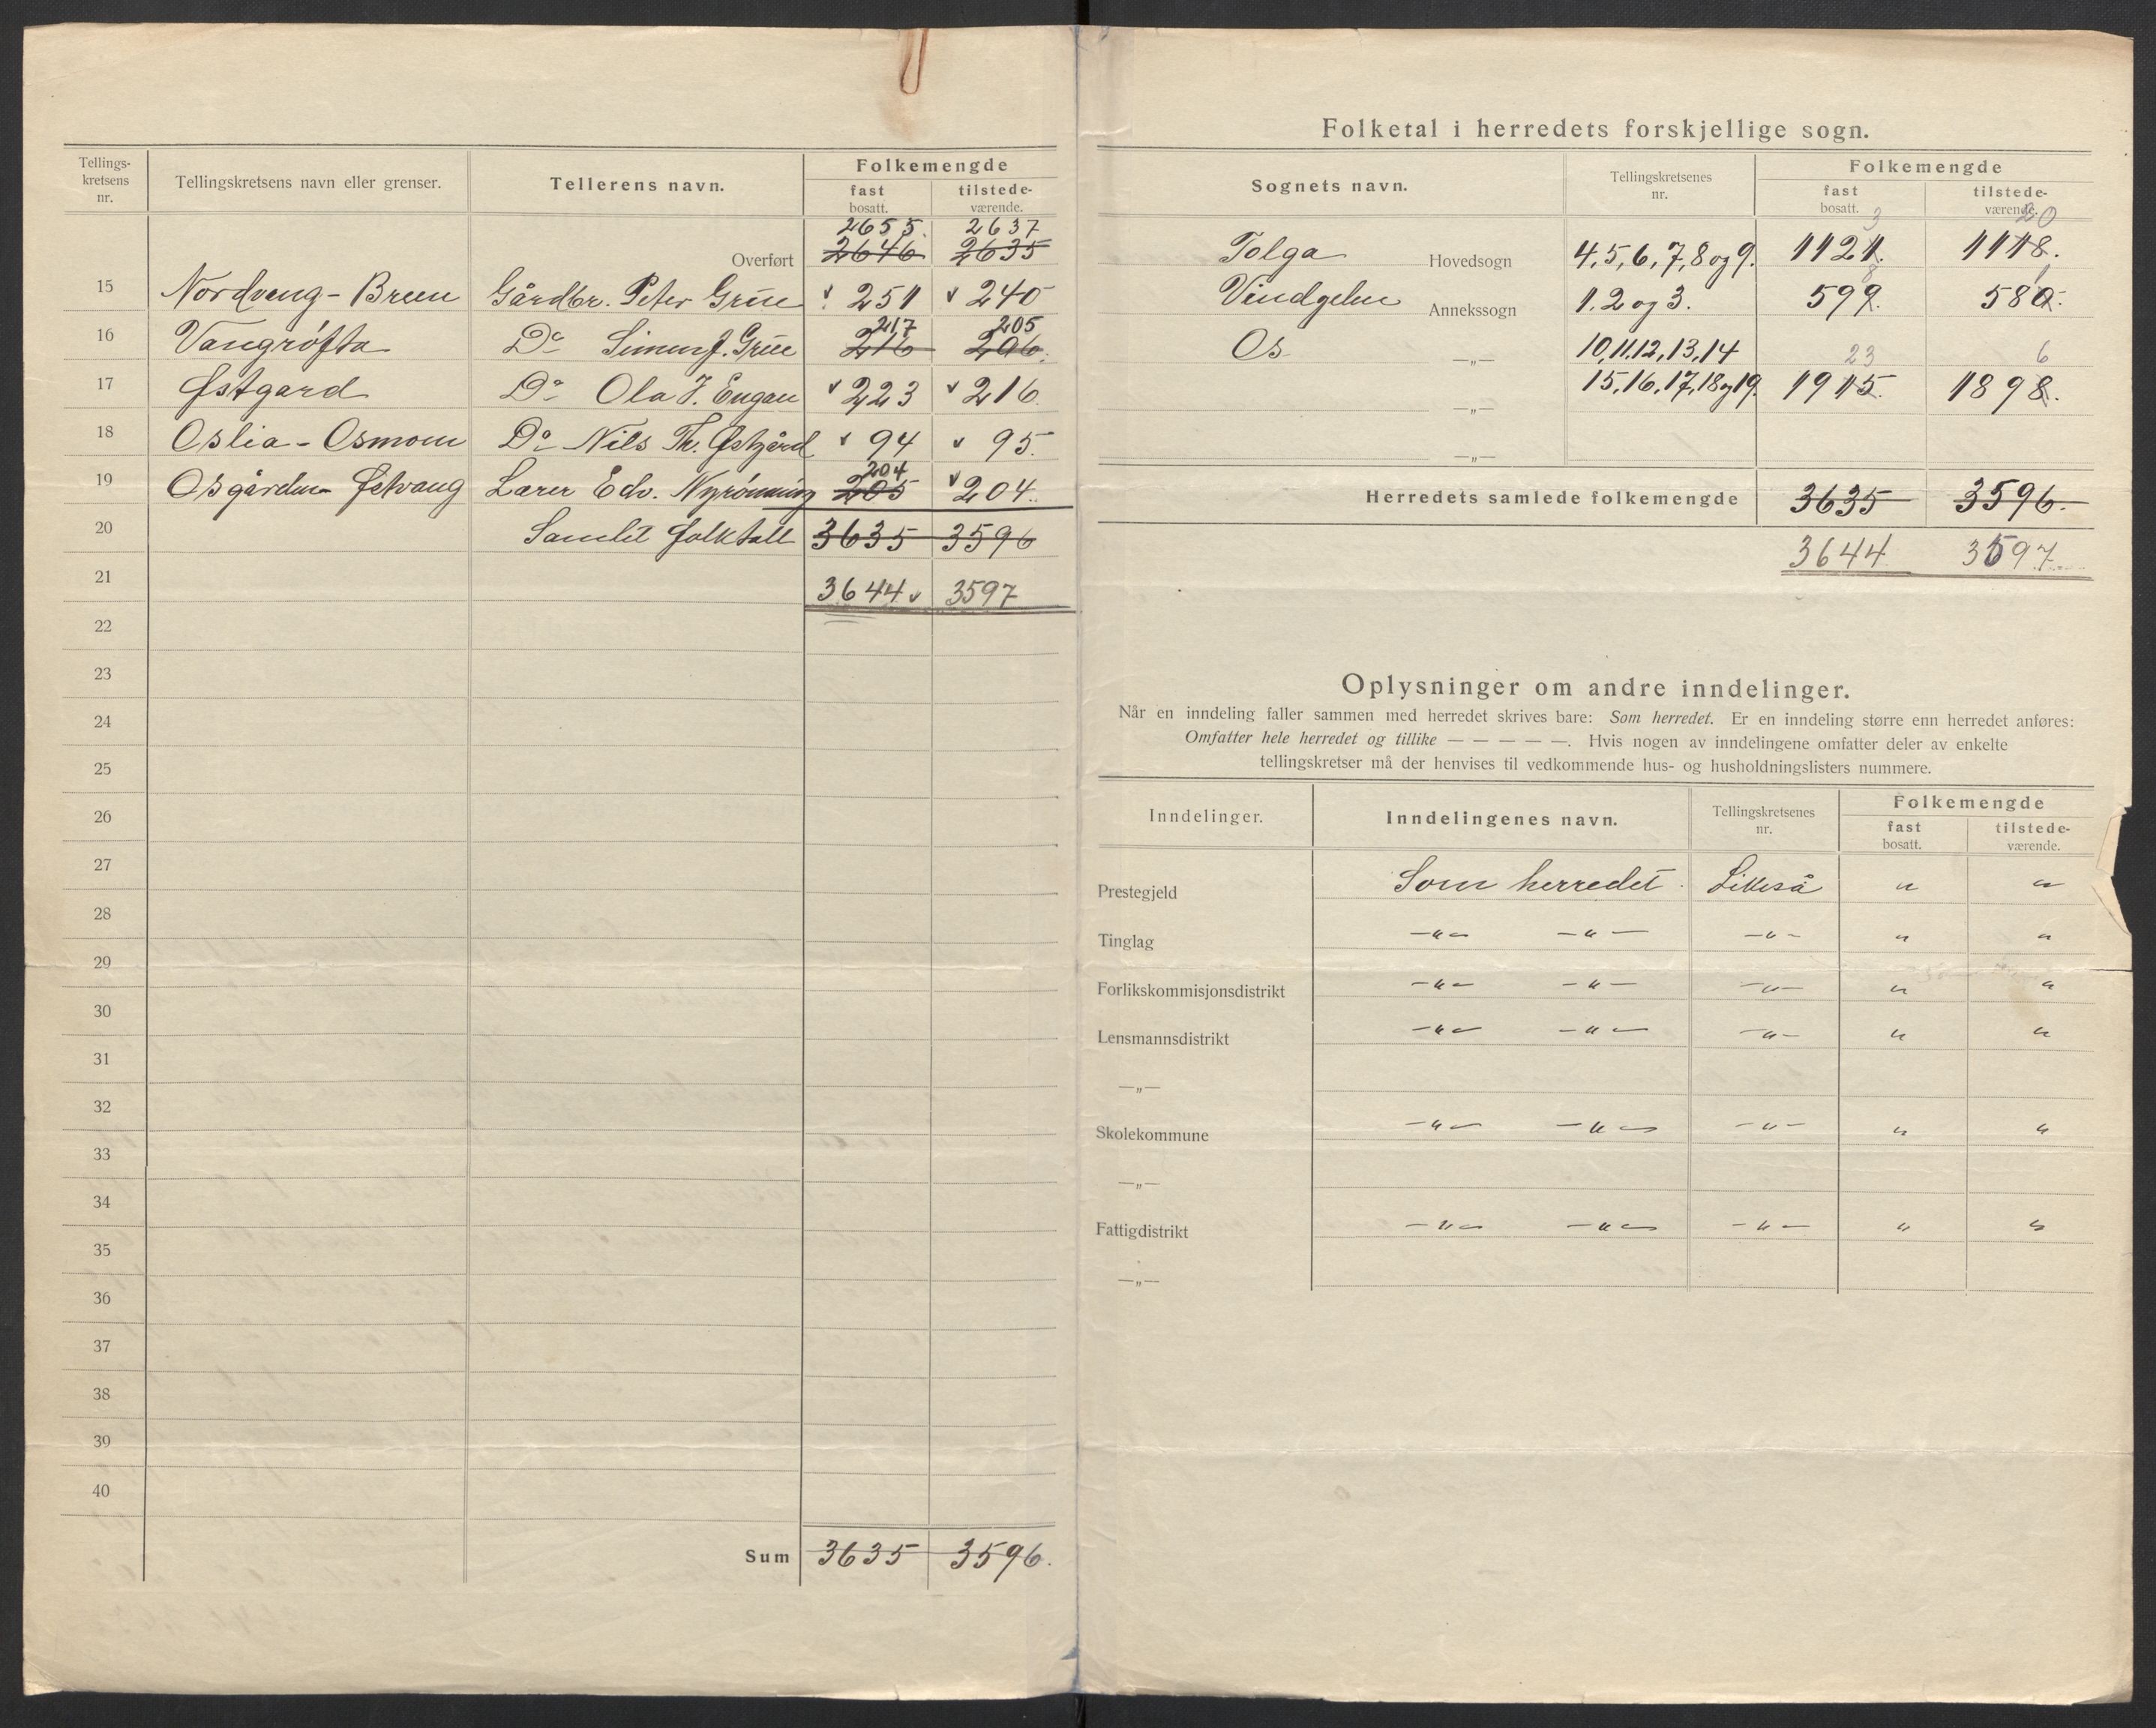 Tellings-
kretsens
nr.
Tellingskretsens navn eller grenser.
Tellerens navn.
Folkemengde
fast
bosatt.
tilstede-
værende.
2655. 2637
Overført 2646 2635
15 Nordveng - Breen Gårdbr. Peter Grue 251 240
217 205
16 Vangrøfta Do Simen J. Grue 216 206.
17 Østgard Do Ola J. Engan 223 216.
18 Oslia - Osmoen Do Nils Th. Østgård 94 95.
204
19 Osgården Østvang Lærer Edv. Nyrønning 205 204.
20 Samlet folketall 3635 3596
21 3644 3597
22
23
24
25
26
27
28
29
30
31
32
33
34
35
36
37
38
39
40
Sum 3635 3596.
Folketal i herredets forskjellige sogn.
Sognets navn.
Tellingskretsenes
nr.
Folkemengde
fast
bosatt.
tilstede-
værende.
3 20
Tolga Hovedsogn 4, 5, 6, 7, 8 og 9. 1121. 1118.
8 1
Vindgelen Annekssogn 1. 2 og 3. 599. 580.
Os —„— 10, 11, 12, 13, 14
23 6
—„— 15, 16, 17, 18 og 19. 1915. 1898.
—„—
Herredets samlede folkemengde 3635 3596.
3644 3597
Oplysninger om andre inndelinger.
Når en inndeling faller sammen med herredet skrives bare: Som herredet. Er en inndeling større enn herredet anføres:
Omfatter hele herredet og tillike — — — — —. Hvis nogen av inndelingene omfatter deler av enkelte
tellingskretser må der henvises til vedkommende hus- og husholdningslisters nummere.
Inndelinger.
Inndelingenes navn.
Tellingskretsenes
nr.
Folkemengde
fast
bosatt.
tilstede-
værende.
Prestegjeld Som herredet. Likeså " "
Tinglag —"— —"— —"— " "
Forlikskommisjonsdistrikt —"— —"— —"— " "
Lensmannsdistrikt —"— —"— —"— " "
—„—
Skolekommune —"— —"— —"— " "
—„—
Fattigdistrikt —"— —"— —"— " "
—„—